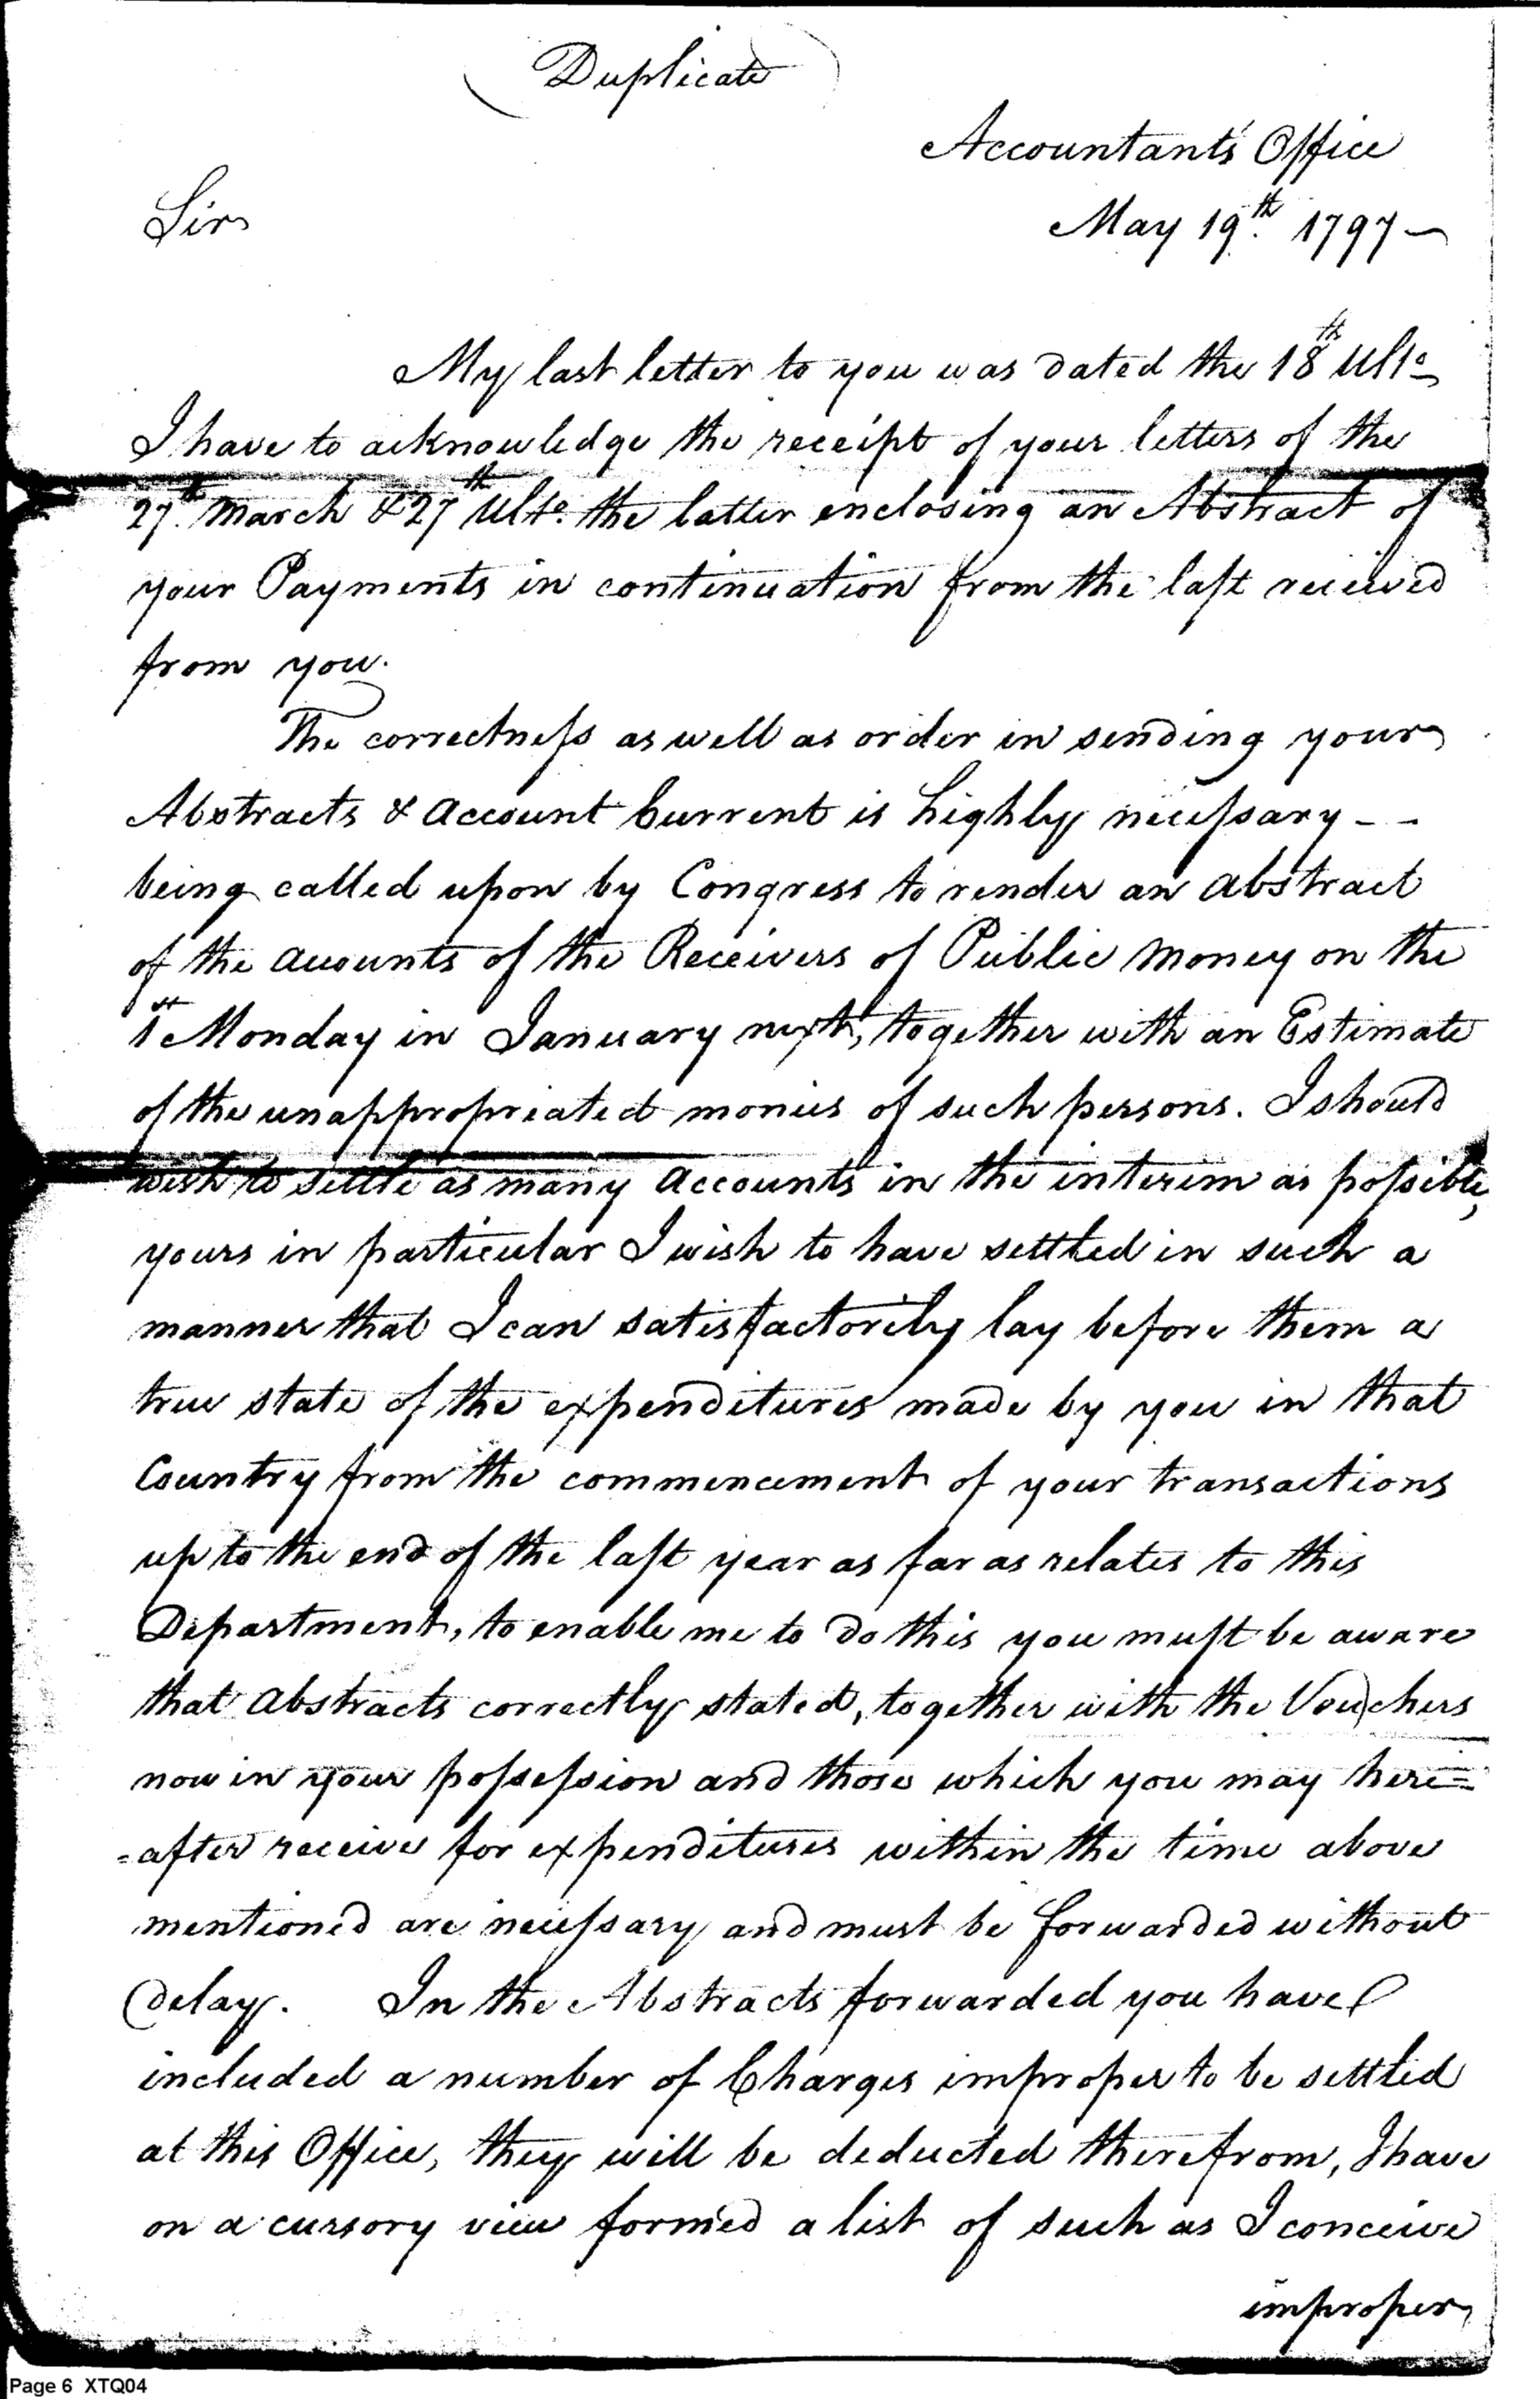 (Duplicate)
Accountants Office
Sir
May 19th. 1797 —
My last letter to you was dated the 18th Ulto
I have to acknowledge the receipt of your letters of the
27th. March & 27th Ulto. the latter enclosing an Abstract of
your Payments in continuation from the last received
from you.
The correctness as well as order in sending your
Abstracts & Account Current is highly necessary - -
being called upon by Congress to render an abstract
of the accounts of the Receivers of Public Money on the
1st Monday in January next, together with an Estimate
of the unappropriated monies of such persons. I should
wish to settle as many accounts in the interim as possible,
yours in particular I wish to have settled in such a
manner that I can satisfactorily lay before them a
true state of the expenditures made by you in that
Country from the commencement of your transactions
up to the end of the last year as far as relates to this
Department, to enable me to do this you must be aware
that abstracts correctly stated, together with the Vouchers
now in your possession and those which you may here=
=after receive for expenditures within the time above
mentioned are necessary and must be forwarded without
delay. In the Abstracts forwarded you have
included a number of Charges improper to be settled
at this Office, they will be deducted therefrom, I have
on a cursory view formed a list of such as I conceive
improper
Page 6 XTQ04